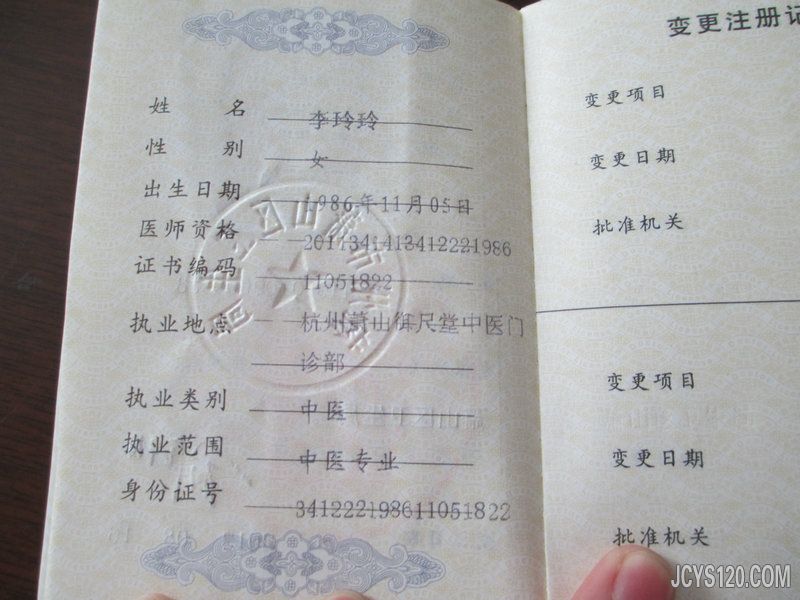 姓名 李玲玲
性别 女
出生日期 1986年11月05日
医师资格 2011341413412221986
证书编码 11051822
执业地点 杭州萧山御尺堂中医门
诊部
执业类别 中医
执业范围 中医专业
身份证号 341222198611051822
变更注册记
变更项目
变更日期
批准机关
变更项目
变更日期
批准机关
JCYS120.COM